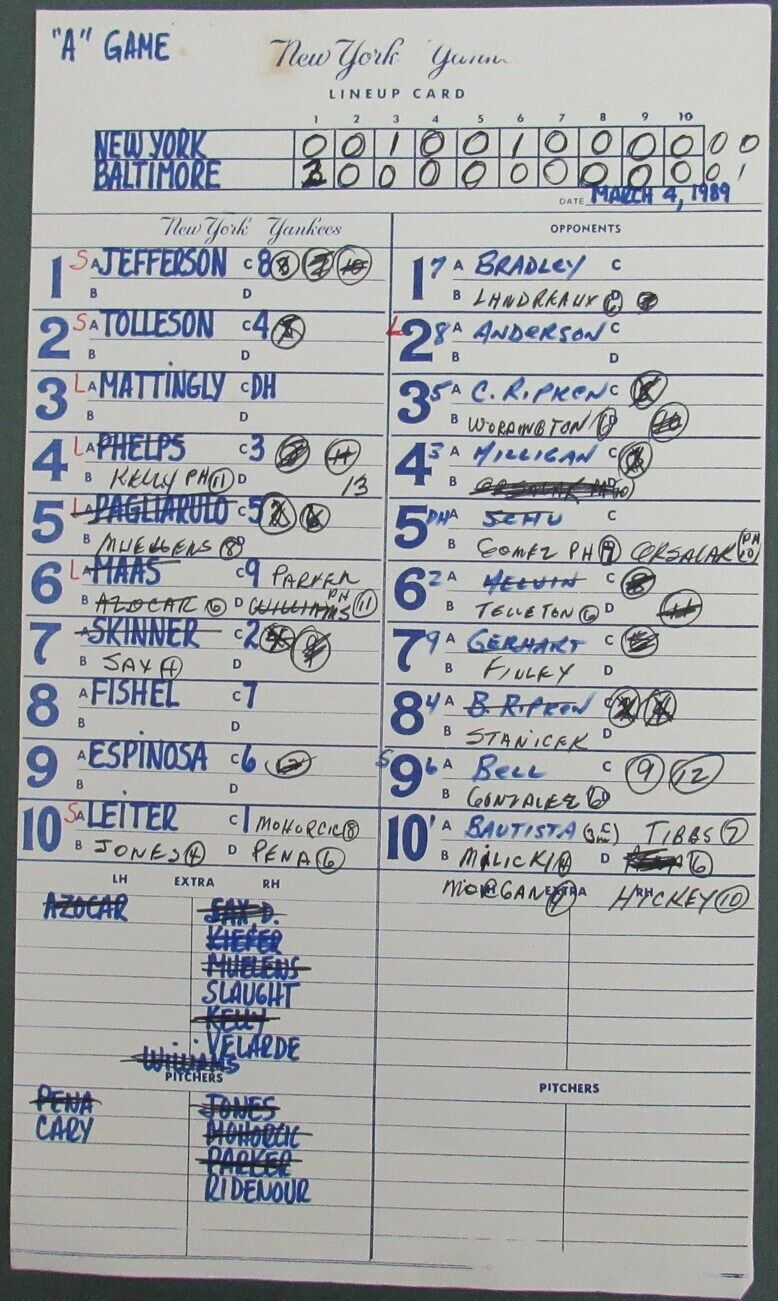 "A" GAME
New York
LINEUP CARD
1 2 3 4 5 6 7 8 9 10
NEW YORK 0 0 1 0 0 1 0 0 0 0 0 0
BALTIMORE 2 0 0 0 0 0 0 0 0 0 0 1
DATE MARCH 4, 1989
New York Yankees
OPPONENTS
1 S A JEFFERSON C 8 8 7 10
B D
2 S A TOLLESON C 4
B D
3 L A MATTINGLY C DH
B D
4 L A PHELPS C 3 11
B KELLY PH 11 D 13
5 L A PAGLIARULO C 5
B MUELLENS 8 D
6 L A MAAS C 9 PARKER
B AZOCAR 6 D WILLIAMS PH 11
7 A SKINNER C 2
B SAX 4 D
8 A FISHEL C 7
B D
9 A ESPINOSA C 6
B D
10 S A LEITER C 1 MOHORCIC 8
B JONES 4 D PENA 6
1 7 A BRADLEY C
B LANDREAUX 6 D
L 2 8 A ANDERSON C
B D
3 5 A C. RIPKEN C
B WORTHINGTON D
4 3 A MILLIGAN C
B D
5 DH A SCHU C
B GOMEZ PH D ORSALAK PH 10
6 2 A MELVIN C
B TETTLETON 6 D
7 9 A GERHART C
B FINLEY D
8 4 A B. RIPKEN C
B STANICEK D
S 9 6 A BELL C 9 12
B GONZALEZ 6 D
10 1 A BAUTISTA C TIBBS 7
B MILACKI 4 D 6
MORGAN HICKEY 10
LH EXTRA RH
LH EXTRA RH
AZOCAR SAX D.
KIEFER
MUELENS
SLAUGHT
KELLY
VELARDE
WILLIAMS
PITCHERS
PENA JONES
CARY MOHORCIC
PARKER
RIDENOUR
PITCHERS